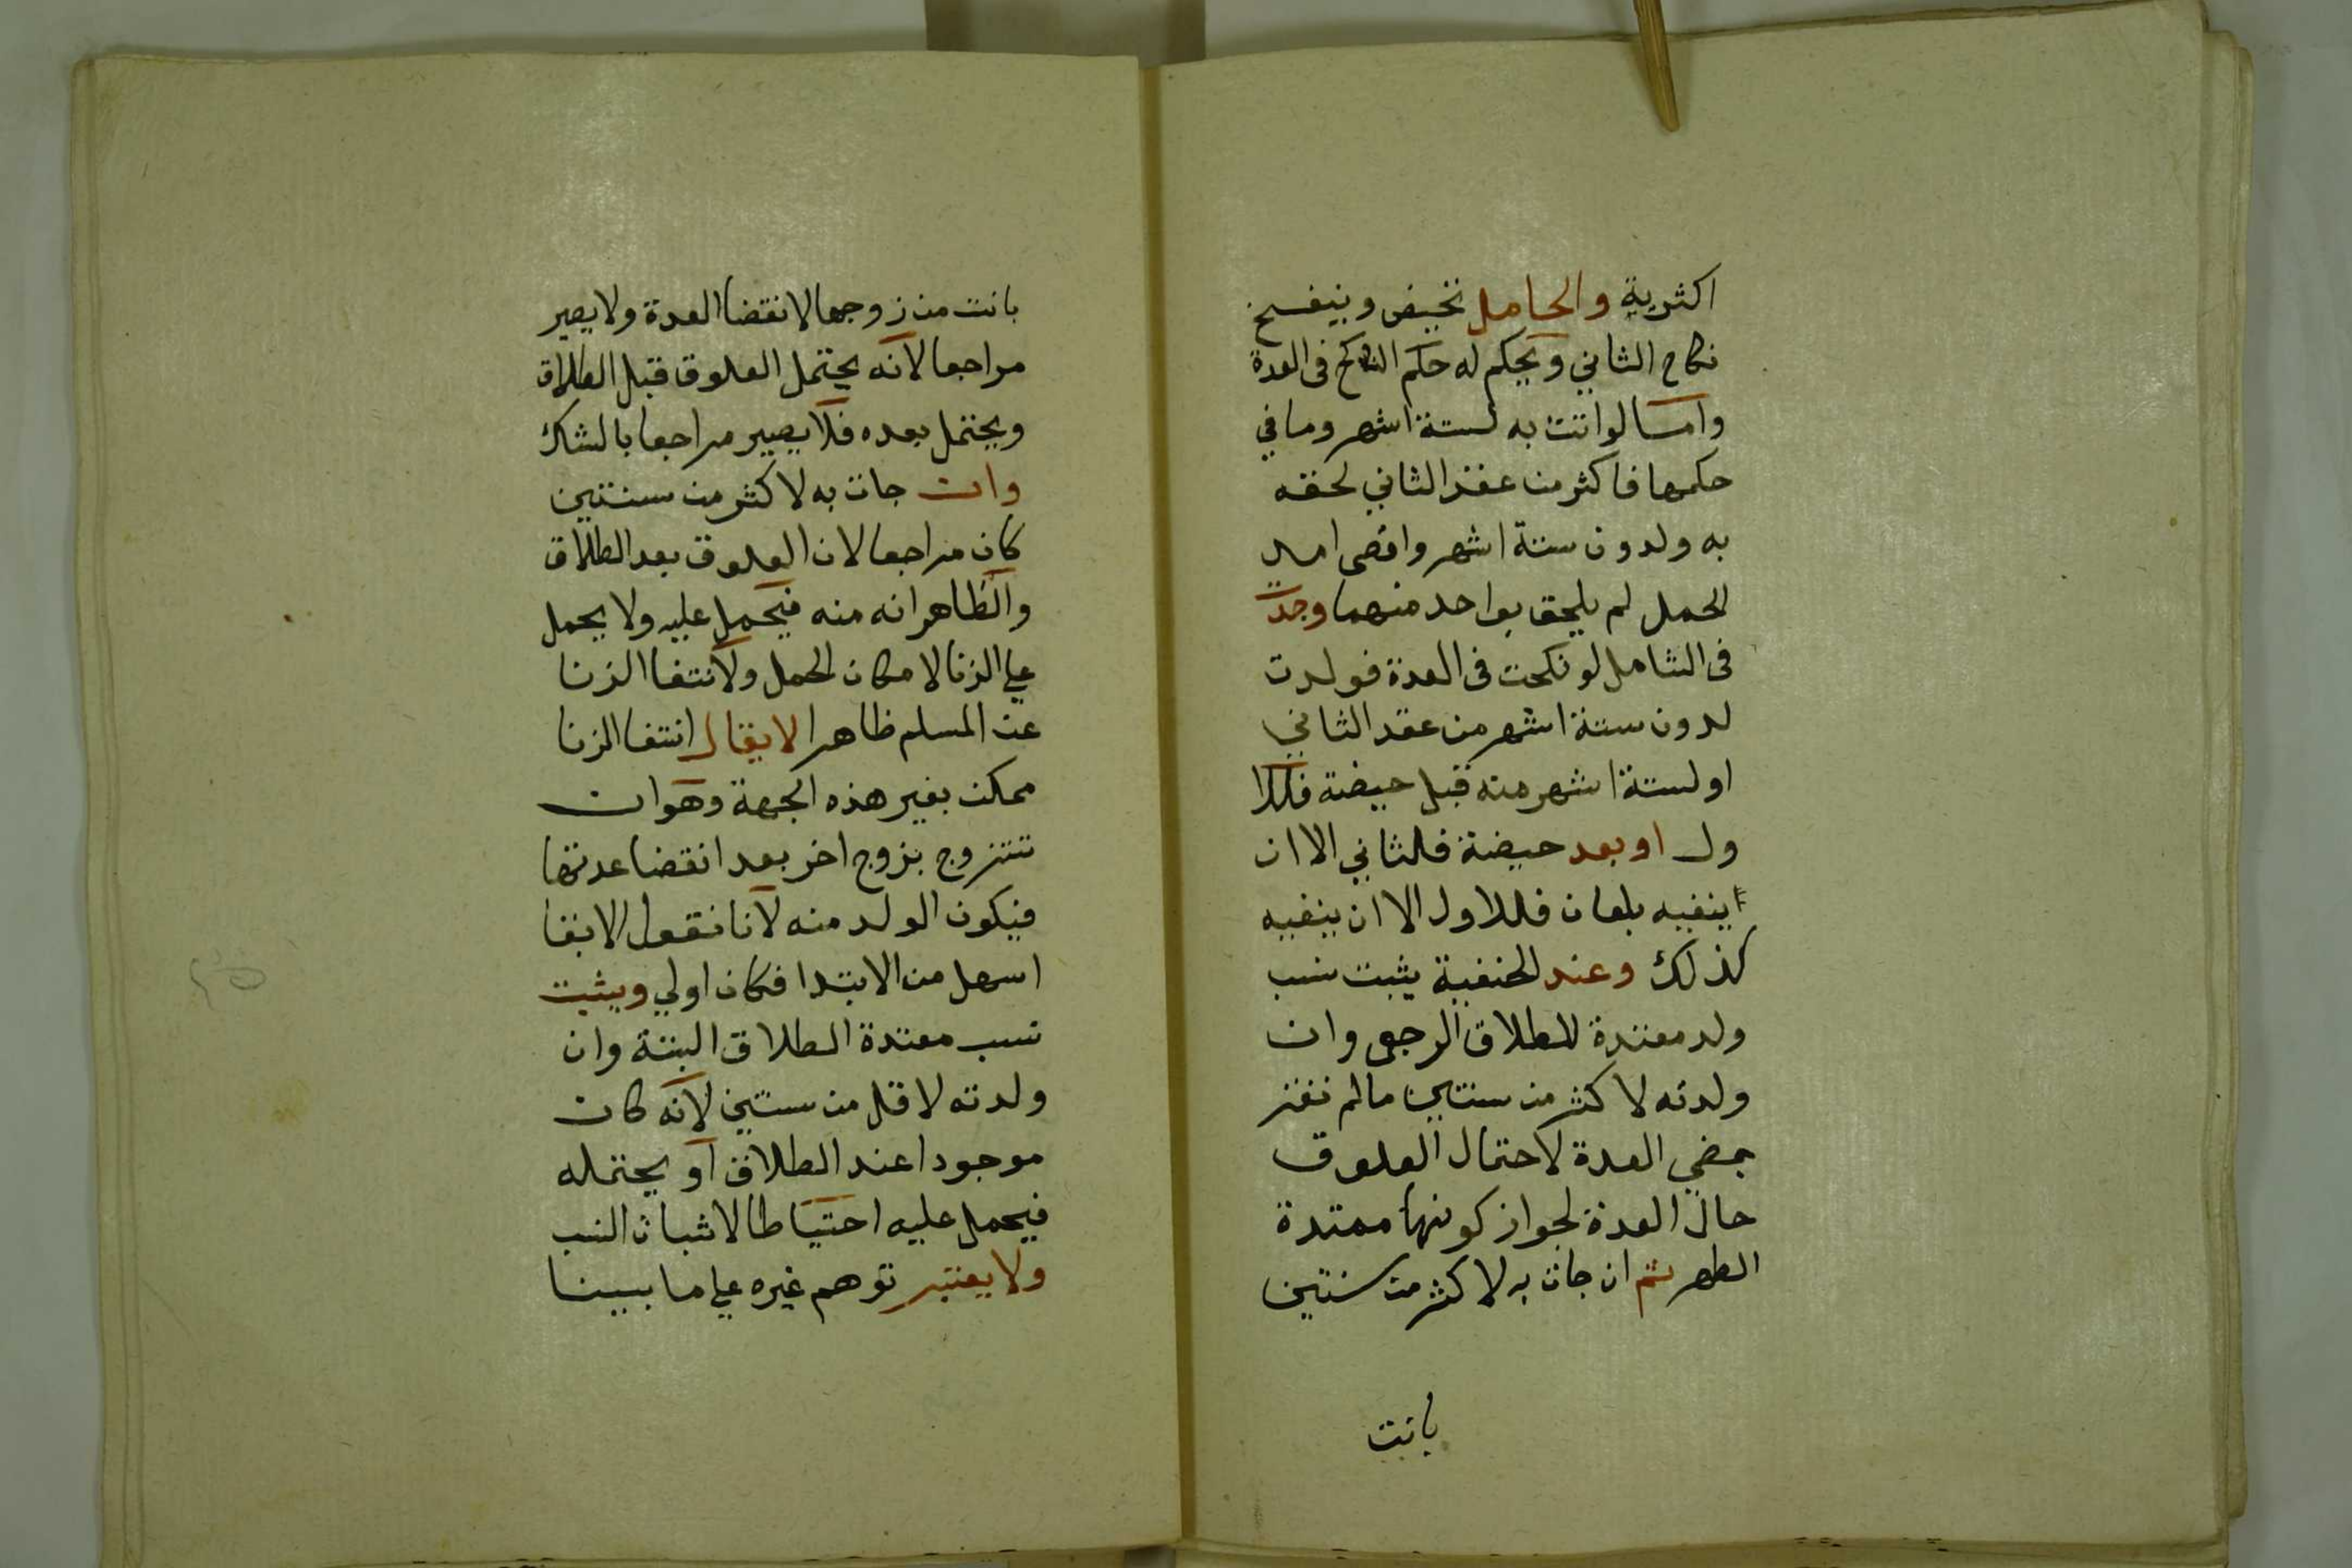 اكثرية والحامل تحيض وينفسخ
نكاح الثاني ويحكم له حكم الناكح فى العدة
واما لو اتت به لستة اشهر وما في
حكمها فاكثر من عقد الثاني لحقه
به ولدون ستة اشهر واقصى امد
الحمل لم يلحق بواحد منهما وجدت
فى الشامل لو نكحت فى العدة فولدت
لدون ستة اشهر من عقد الثاني
او لستة اشهر منه قبل حيضة فللا
ول او بعد حيضة فللثاني الا ان
ينفيه بلعان فللاول الا ان ينفيه
كذلك وعند الحنفية يثبت نسب
ولد معتدة الطلاق الرجعى وان
ولدته لاكثر من سنتين ما لم تقر
بمضي العدة لاحتمال العلوق
حال العدة لجواز كونها ممتدة
الطهر ثم ان جات به لاكثر من سنتين
بانت
بانت من زوجها لانقضا العدة ولا يصير
مراجعا لانه يحتمل العلوق قبل الطلاق
ويحتمل بعده فلا يصير مراجعا بالشك
وان جات به لاكثر من سنتين
كان مراجعا لان العلوق بعد الطلاق
والظاهر انه منه فيحمل عليه ولا يحمل
على الزنا لامكان الحمل ولانتفا الزنا
عن المسلم ظاهرا لا يقال انتفا الزنا
ممكن بغير هذه الجهة وهو ان
تتزوج بزوج اخر بعد انقضا عدتها
فيكون الولد منه لانا نقول الابقا
اسهل من الابتدا فكان اولي ويثبت
نسب معتدة الطلاق البتة وان
ولدته لاقل من سنتين لانه كان
موجودا عند الطلاق او يحتمله
فيحمل عليه احتياطا لاثبات النسب
ولا يعتبر توهم غيره على ما بينا